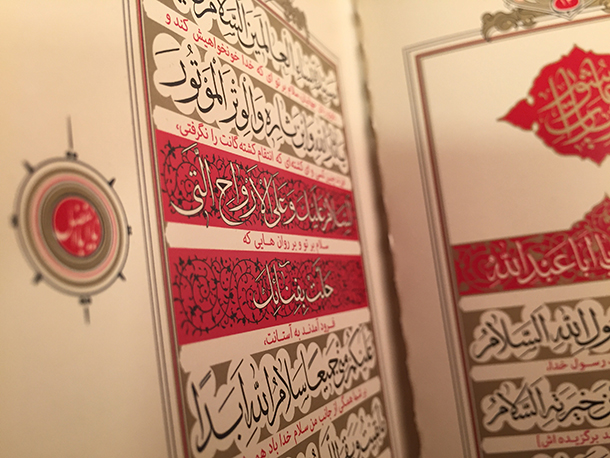 العالمين السلام
که خدا خونخواهیش کند و
ثاره والوتر الموتور
ای کشته‌ای که انتقام کشته‌گانت را نگرفتی،
السلام عليك وعلى الارواح التي
سلام بر تو و بر روان هایی که
حلت بفنائك
فرود آمدند به آستانت،
عليكم مني جميعا سلام الله ابدا
از جانب من سلام خدا باد
عاشورا
ابا عبد الله
رسول الله السلام
رسول خدا،
خيرته السلام
برگزیده اش)